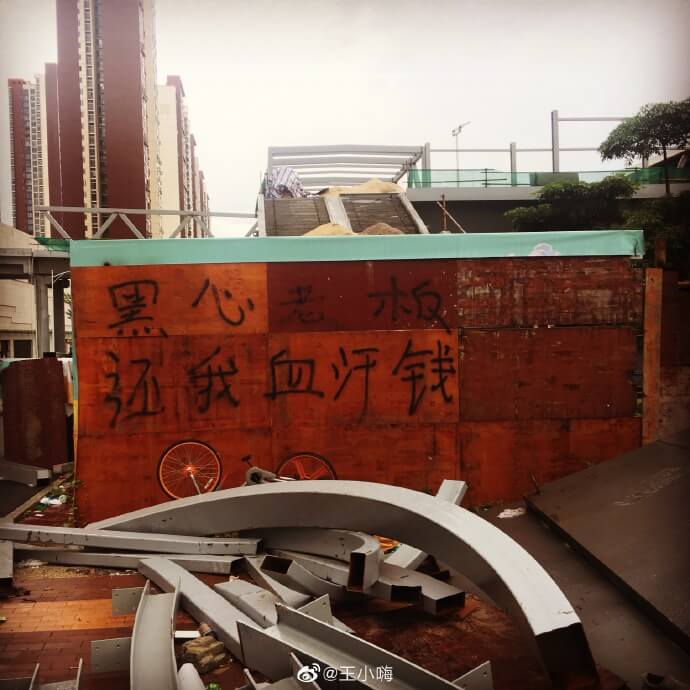 黑心老板
还我血汗钱
@王小嗨